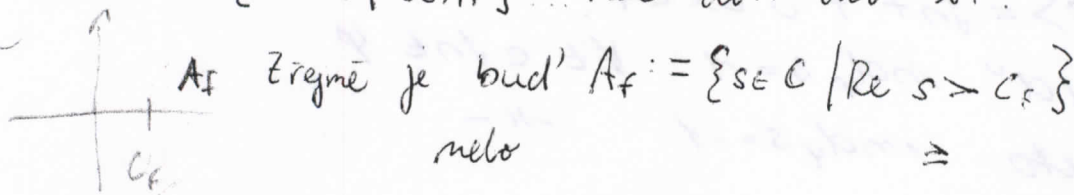 A_f Zřejmě je buď A_f := {s ∈ C / Re s > c_f}
nebo ≥
c_f